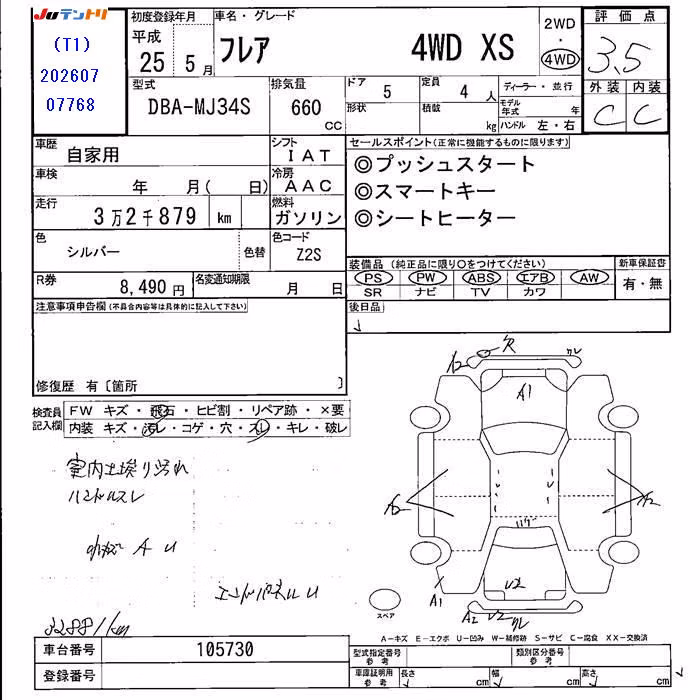 Juテントリ
(T1)
202607
07768
初度登録年月
平成
25 5月
車名・グレード
フレア 4WD XS
2WD
・
4WD
評価点
3.5
外装 内装
C C
型式
DBA-MJ34S
排気量
660
CC
ドア 5
形状
定員 4 人
積載 kg
ディーラー・並行
モデル年式 年
ハンドル 左・右
車歴 自家用
シフト IAT
車検 年 月( 日)
冷房 AAC
走行 3万2千879 km
燃料 ガソリン
色 シルバー 色替
色コード Z2S
R券 8,490円
名変通知期限 月 日
セールスポイント(正常に機能するものに限ります)
◎プッシュスタート
◎スマートキー
◎シートヒーター
装備品(純正品に限り〇をつけてください)
PS PW ABS エアB AW
SR ナビ TV カワ
新車保証書
有・無
後日品
注意事項申告欄(不具合内容等は具体的に記入して下さい)
修復歴 有〔箇所 〕
検査員記入欄
FW キズ・飛石・ヒビ割・リペア跡・×要
内装 キズ・汚レ・コゲ・穴・スレ・キレ・破レ
室内土埃り汚れ
ハンドルスレ
小キズ A U
エンドパネル U
32881km
A2 欠
A1
A2
A2
U2
A1
A2 U2
スペア
A-キズ E-エクボ U-凹み W-補修跡 S-サビ C-腐食 XX-交換済
車台番号 105730
登録番号
型式指定番号 参考
類別区分番号 参考
車庫証明用 参考
長さ cm 幅 cm 高さ cm